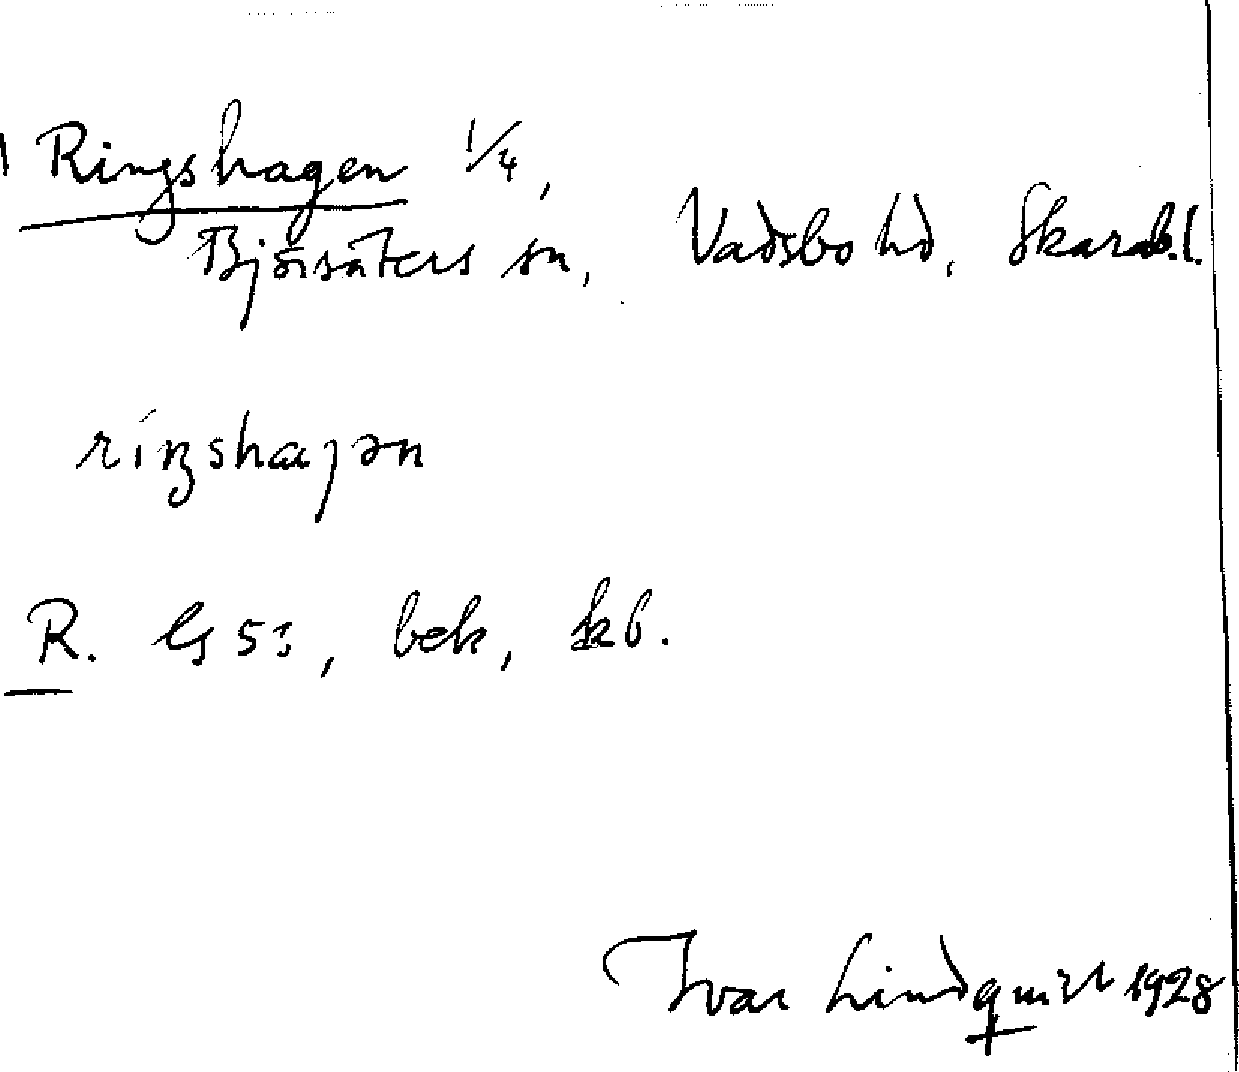 Ringshagen 1/4,
Björsäters sn, Vadsbo hd, Skarab.l.
ríŋshaɡən
R. GS 53, bek, kb.
Ivar Lindquist 1928